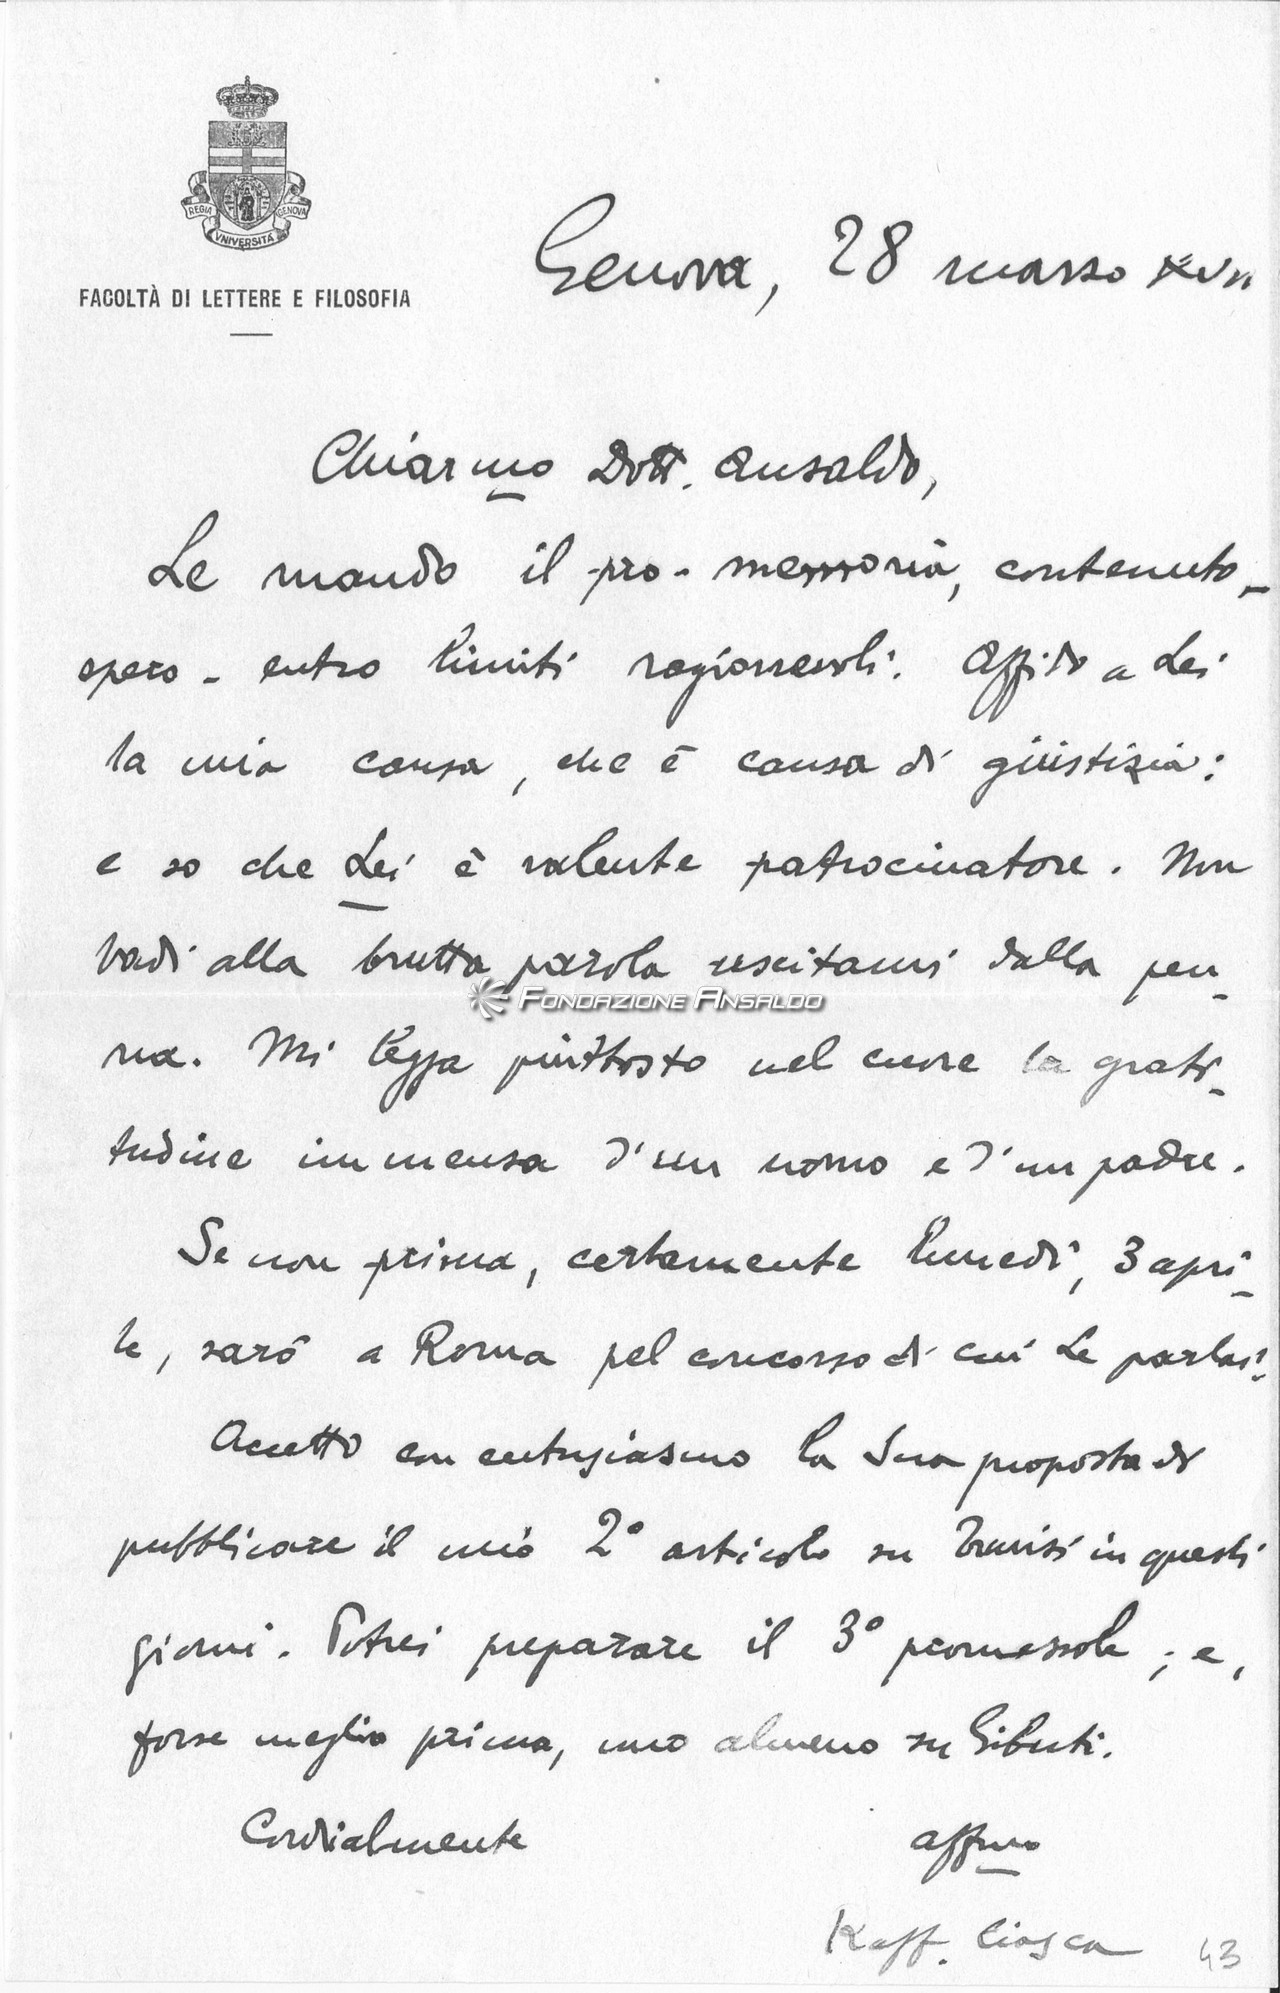 REGIA
GENOVA
VNIVERSITÁ
FACOLTÀ DI LETTERE E FILOSOFIA
Genova, 28 marzo XVII
Chiarmo Dott. Ansaldo,
Le mando il pro-memoria, contenuto-
spero - entro limiti ragionevoli. Affido a Lei
la mia causa, che è causa di giustizia:
e so che Lei è valente patrocinatore. Non
badi alla brutta parola uscitami dalla pen-
na. Mi legga piuttosto nel cuore la grati-
tudine immensa d'un uomo e d'un padre.
Se non prima, certamente lunedì, 3 apri-
le, sarò a Roma pel concorso di cui Le parlai.
Accetto con entusiasmo la Sua proposta di
pubblicare il mio 2° articolo su Tunisi in questi
giorni. Potrei preparare il 3° promessole; e,
forse meglio prima, uno almeno su Gibuti.
Cordialmente affmo
Raff. Ciasca
43
FONDAZIONE ANSALDO